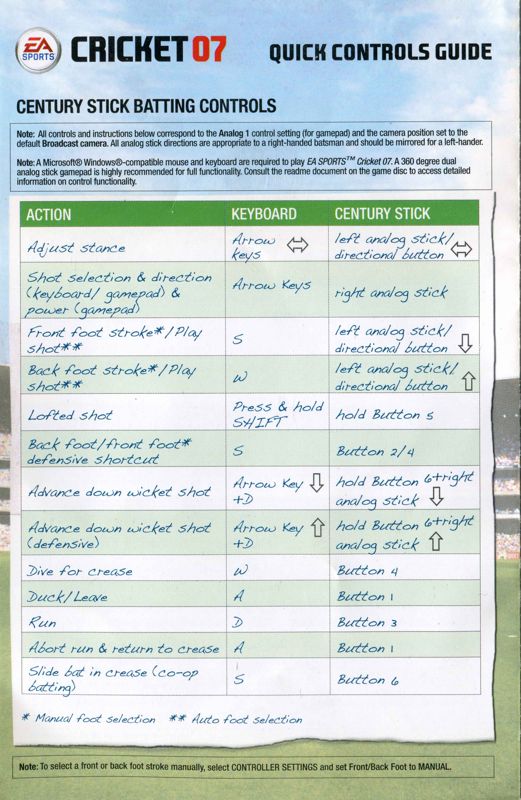 EA SPORTS CRICKET 07 QUICK CONTROLS GUIDE
CENTURY STICK BATTING CONTROLS
Note: All controls and instructions below correspond to the Analog 1 control setting (for gamepad) and the camera position set to the
default Broadcast camera. All analog stick directions are appropriate to a right-handed batsman and should be mirrored for a left-hander.
Note: A Microsoft® Windows®-compatible mouse and keyboard are required to play EA SPORTS™ Cricket 07. A 360 degree dual
analog stick gamepad is highly recommended for full functionality. Consult the readme document on the game disc to access detailed
information on control functionality.
ACTION KEYBOARD CENTURY STICK
Adjust stance Arrow keys ⇔ left analog stick/ directional button ⇔
Shot selection & direction (keyboard/ gamepad) & power (gamepad) Arrow Keys right analog stick
Front foot stroke*/Play shot** S left analog stick/ directional button ⇩
Back foot stroke*/Play shot** W left analog stick/ directional button ⇧
Lofted shot Press & hold SHIFT hold Button 5
Back foot/front foot* defensive shortcut S Button 2/4
Advance down wicket shot Arrow Key ⇩ +D hold Button 6+right analog stick ⇩
Advance down wicket shot (defensive) Arrow Key ⇧ +D hold Button 6+right analog stick ⇧
Dive for crease W Button 4
Duck/Leave A Button 1
Run D Button 3
Abort run & return to crease A Button 1
Slide bat in crease (co-op batting) S Button 6
* Manual foot selection ** Auto foot selection
Note: To select a front or back foot stroke manually, select CONTROLLER SETTINGS and set Front/Back Foot to MANUAL.